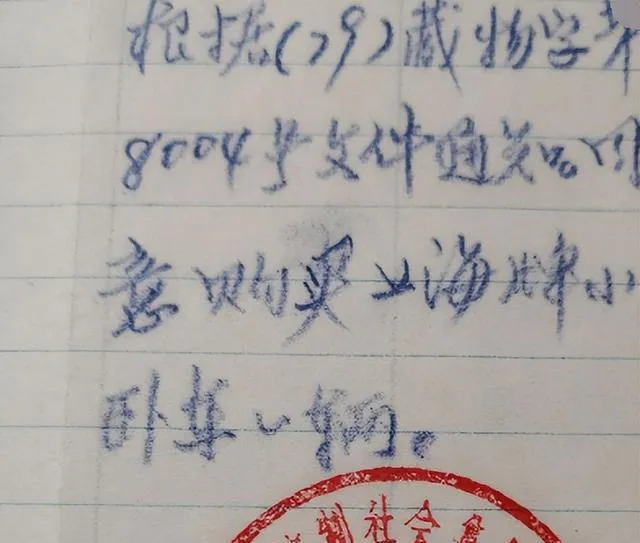 根据(79)藏物字第
8004号文件通关,同
意购买上海牌小
卧车一辆。
社会